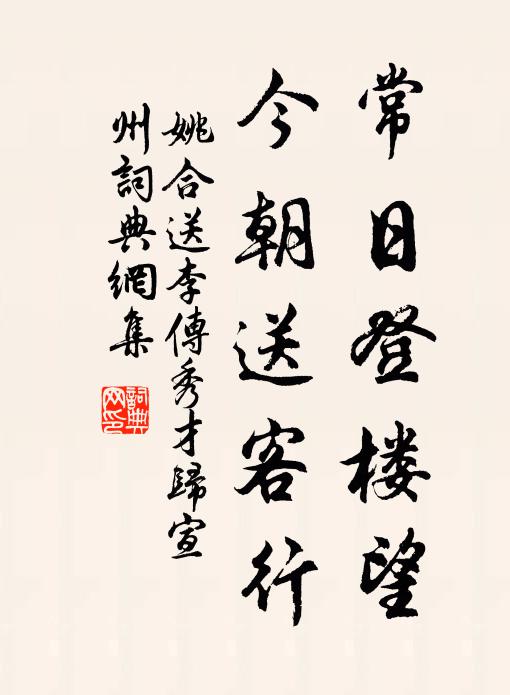 常日登楼望
今朝送客行
姚合送李傳秀才歸宣
州詞典網集
詞典
网印